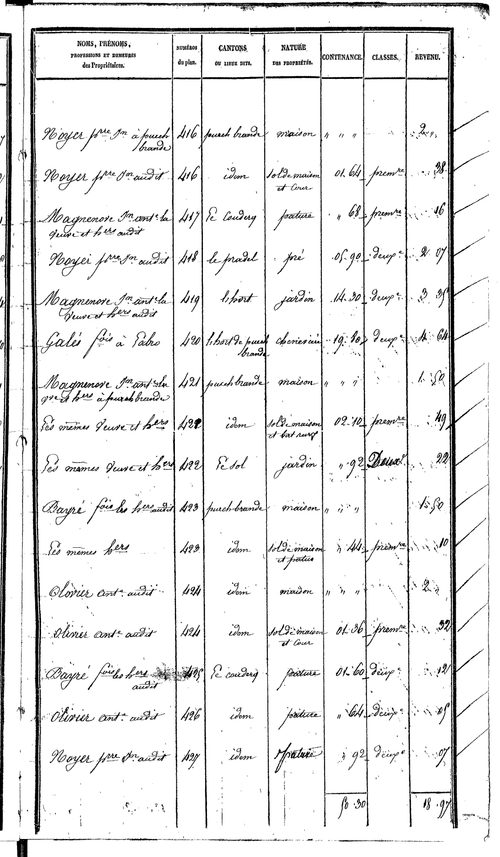 NOMS, PRÉNOMS, PROFESSIONS ET DEMEURES des Propriétaires. NUMÉROS du plan. CANTONS OU LIEUX DITS. NATURE DES PROPRIÉTÉS. CONTENANCE. CLASSES. REVENU.
Noyer p.rre J.n à puech brande 416 puech brande maison " " " 2 " "
Noyer p.rre J.n audit 416 idem sol de maison et cour 01. 64 prem.re 38
Magnenove J.n ant.e la veuve et h.ers audit 417 Le couderq pature " 68 prem.re 16
Noyer p.rre J.n audit 418 le pradel pré 05. 90 deux.e 2 07
Magnenove J.n ant.e la veuve et h.ers audit 419 l'hort jardin 14. 30 deux.e 3 35
Galés f.ois à 420 l'hort de puech brande 19. deux.e 4 64
Magnenove J.n ant.e la v.ve et h.ers à puech brande 421 puech brande maison " " " 1. 50
Les mêmes veuve et h.ers 422 idem sol de maison et 02. 10 prem.re 49
Les mêmes veuve et h.ers 422 Le sol jardin " 92 Deux.e 22
Bayré f.ois les h.ers audit 423 puech-brande maison " " " 1. 50
Les mêmes h.ers 423 idem sol de maison et " 44 prem.re 10
Olivier ant.e audit 424 idem maison " " " 2
Olivier ant.e audit 424 idem sol de maison et cour 01. 36 prem.re 32
Bayré f.ois les h.ers audit 425 Le couderq pature 01. 60 deux.e 12
Olivier ant.e audit 426 idem pature " 64 deux.e 05
Noyer p.rre J.n audit 427 idem pature " 92 deux.e 07
50. 30 18. 97